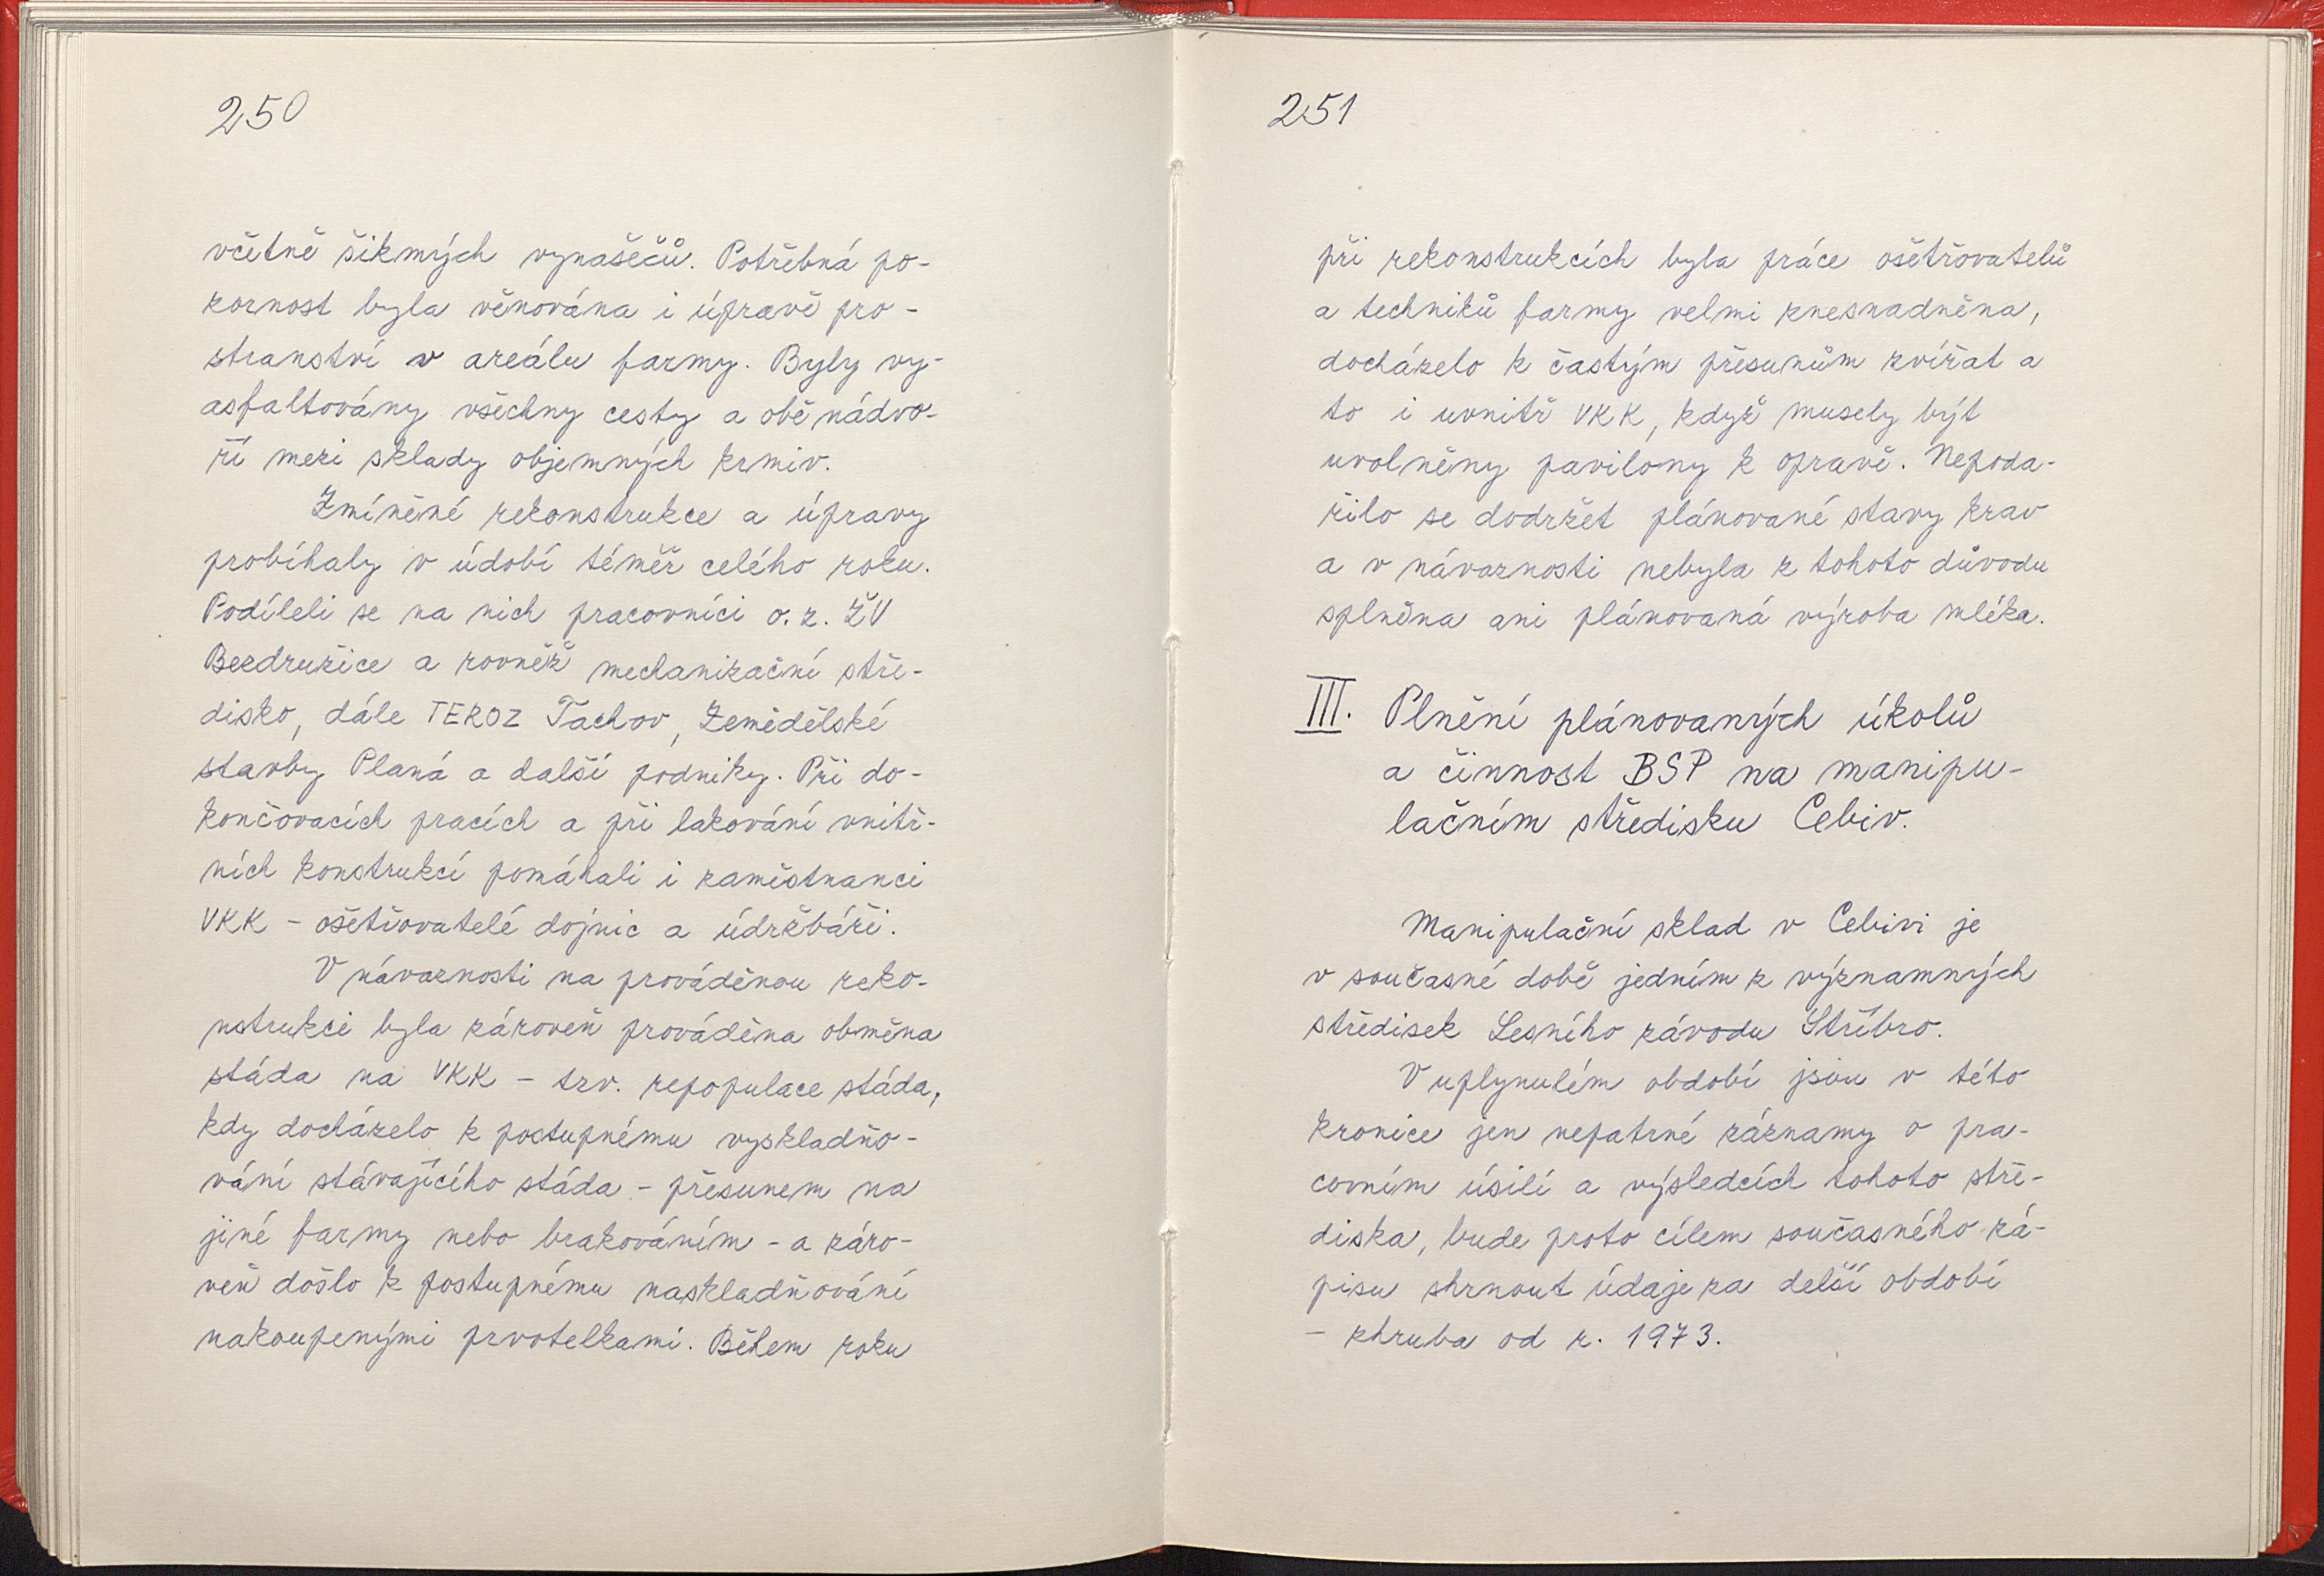 250
včetně šikmých vynašečů. Potřebná po-
zornost byla věnována i úpravě pro-
stranství v areálu farmy. Byly vy-
asfaltovány všechny cesty a obě nádvo-
ří mezi sklady objemných krmiv.
Zmíněné rekonstrukce a úpravy
probíhaly v údobí téměř celého roku.
Podíleli se na nich pracovníci o.z. ŽV
Bezdružice a rovněž mechanizační stře-
disko, dále TEROZ Tachov, Zemědělské
stavby Planá a další podniky. Při do-
končovacích pracích a při lakování vnitř-
ních konstrukcí pomáhali i zaměstnanci
VKK - ošetřovatelé dojnic a údržbáři.
V návaznosti na prováděnou reko-
nstrukci byla zároveň prováděna obměna
stáda na VKK - tzv. repopulace stáda,
kdy docházelo k postupnému vyskladňo-
vání stávajícího stáda - přesunem na
jiné farmy nebo brakováním - a záro-
veň došlo k postupnému naskladňování
nakoupenými prvotelkami. Během roku
251
při rekonstrukcích byla práce ošetřovatelů
a techniků farmy velmi znesnadněna,
docházelo k častým přesunům zvířat a
to i uvnitř VKK, když musely být
uvolněny pavilony k opravě. Nepoda-
řilo se dodržet plánované stavy krav
a v návaznosti nebyla z tohoto důvodu
splněna ani plánovaná výroba mléka.
III. Plnění plánovaných úkolů
a činnost BSP na manipu-
lačním středisku Cebiv.
Manipulační sklad v Cebivi je
v současné době jedním z významných
středisek Lesního závodu Stříbro.
V uplynulém období jsou v této
kronice jen nepatrné záznamy o pra-
covním úsilí a výsledcích tohoto stře-
diska, bude proto cílem současného zá-
pisu shrnout údaje za delší období
- zhruba od r. 1973.